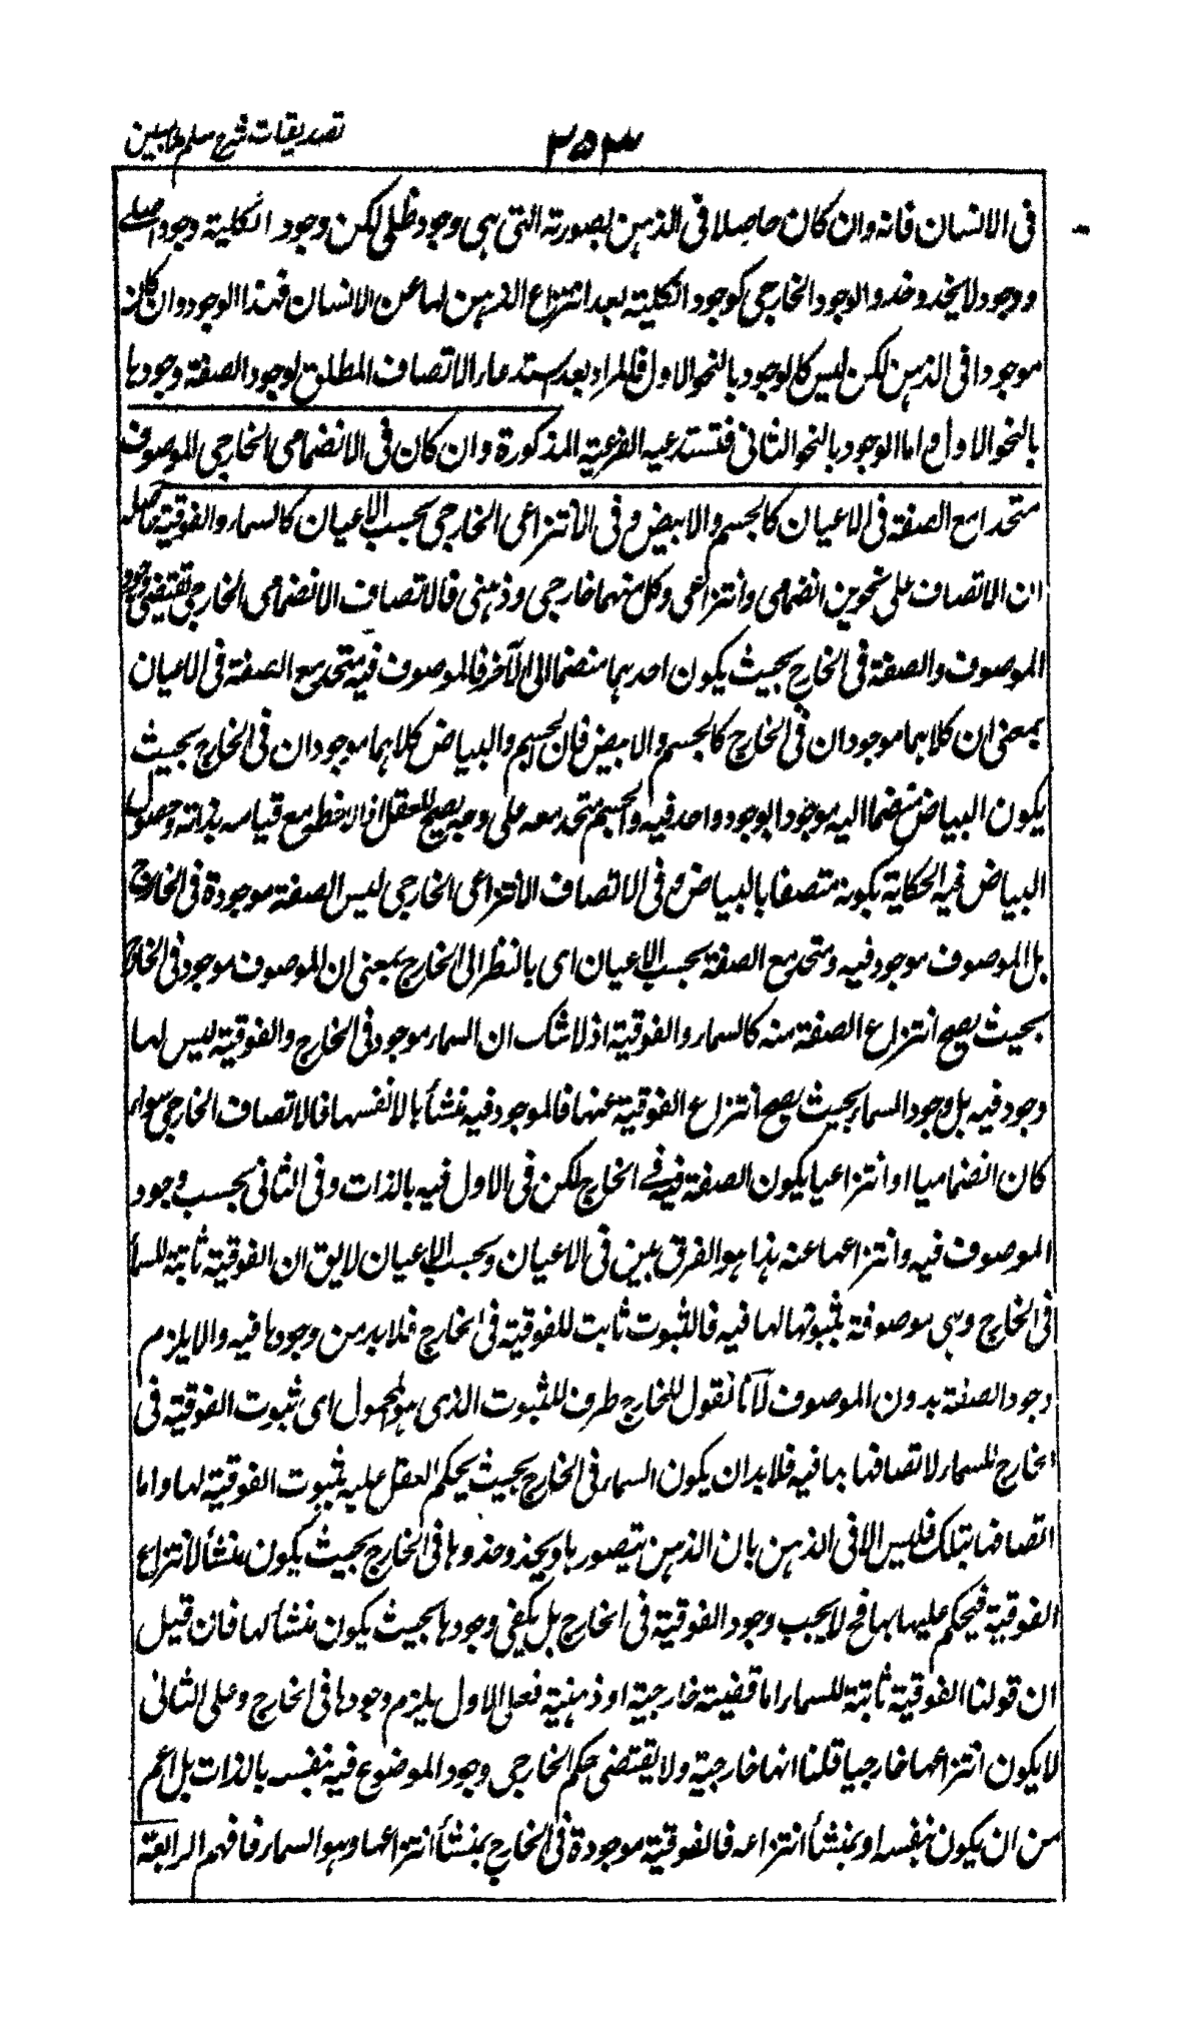 تصديقات شرح سلم ملا مبين
۲۵۳
فى الانسان فانه وان كان حاصلا فى الذهن بصورته التى هى وجود ظلى لكن وجود الكلية وجود اصلى
ووجود لا يحذو حذو الوجود الخارجى كوجود الكلية بعد انتزاع الذهن لها عن الانسان فهذا الوجود وان كان
موجودا فى الذهن لكن ليس كالوجود بالنحو الاول فالمراد بعد استدعاء الاتصاف المطلق لوجود الصفة وجودها
بالنحو الاول واما الوجود بالنحو الثانى فتستدعيه الفرعية المذكورة وان كان فى الانضمامى الخارجى الموصوف
متحدا مع الصفة فى الاعيان كالجسم والابيض وفى الانتزاعى الخارجى بحسب الاعيان كالسماء والفوقية حاصله
ان الاتصاف على نحوين انضمامى وانتزاعى وكل منهما خارجى وذهنى فالاتصاف الانضمامى الخارجى يقتضى وجود
الموصوف والصفة فى الخارج بحيث يكون احدهما منضما الى الآخر فالموصوف فيه متحد مع الصفة فى الاعيان
بمعنى ان كلاهما موجودان فى الخارج كالجسم والابيض فان الجسم والبياض كلاهما موجودان فى الخارج بحيث
يكون البياض منضما اليه موجودا بوجود واحد فيه والجسم متحد معه على وجه يصح للعقل اذا لاحظ مع قياسه بذاته وحصول
البياض فيه الحكاية بكونه متصفا بالبياض وفى الاتصاف الانتزاعى الخارجى ليس الصفة موجودة فى الخارج
بل الموصوف موجود فيه ومتحد مع الصفة بحسب الاعيان اى بالنظر الى الخارج بمعنى ان الموصوف موجود فى الخارج
بحيث يصح انتزاع الصفة منه كالسماء والفوقية اذ لا شك ان السماء موجود فى الخارج والفوقية ليس لها
وجود فيه بل وجود السماء بحيث يصح انتزاع الفوقية عنها فالموجود فيه منشأها لا نفسها فالاتصاف الخارجى سواء
كان انضماميا او انتزاعيا يكون الصفة فيه فى الخارج لكن فى الاول فيه بالذات وفى الثانى بحسب وجود
الموصوف فيه وانتزاعها عنه هذا هو الفرق بين فى الاعيان وبحسب الاعيان لايق ان الفوقية ثابتة للسماء
فى الخارج وهى موصوفة بثبوتها لها فيه فالثبوت ثابت للفوقية فى الخارج فلا بد من وجودها فيه والا يلزم
وجود الصفة بدون الموصوف لانا نقول الخارج ظرف للثبوت الذى هو المحمول اى ثبوت الفوقية فى
الخارج للسماء لاتصافها بها فيه فلا بد ان يكون السماء فى الخارج بحيث يحكم العقل عليه بثبوت الفوقية لها واما
اتصافها بتلك فليس الا فى الذهن بان الذهن يتصورها ويحذو حذوها فى الخارج بحيث يكون منشأ لانتزاع
الفوقية فيحكم عليها بها فح لا يجب وجود الفوقية فى الخارج بل يكفى وجودها بحيث يكون منشأ لها فان قيل
ان قولنا الفوقية ثابتة للسماء اما قضية خارجية او ذهنية فعلى الاول يلزم وجودها فى الخارج وعلى الثانى
لا يكون انتزاعها خارجيا قلنا انها خارجية ولا يقتضى حكم الخارجى وجود الموضوع فيه بنفسه بالذات بل اعم
من ان يكون بنفسه او بمنشأ انتزاعه فالفوقية موجودة فى الخارج بمنشأ انتزاعها وهو السماء فافهم الرابعة